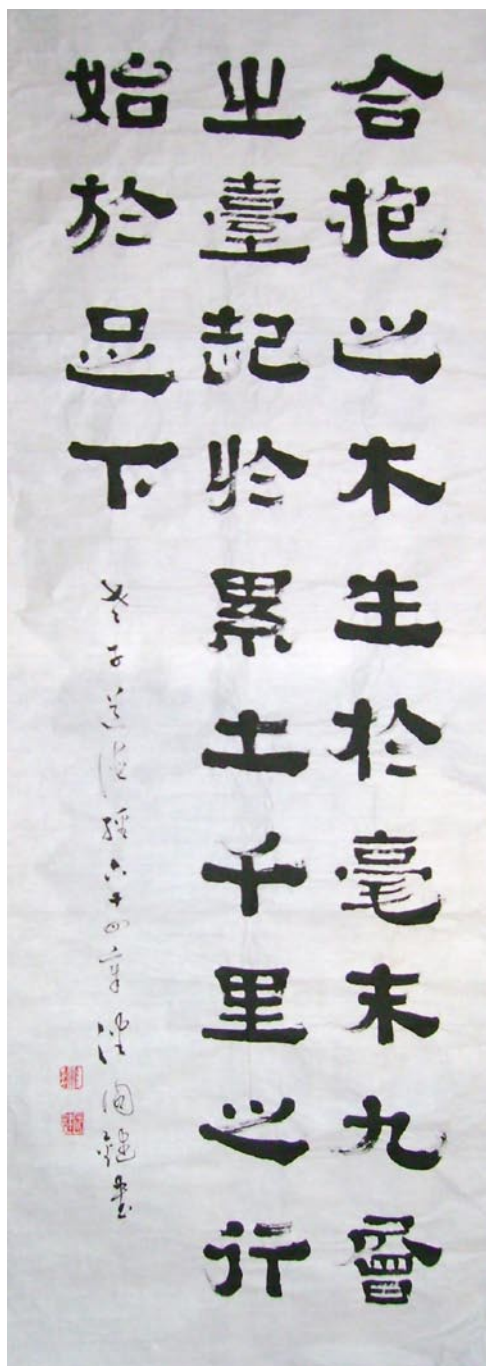 合抱之木生於毫末九曾
之臺起於累土千里之行
始於足下
老子道德經六十四章 書